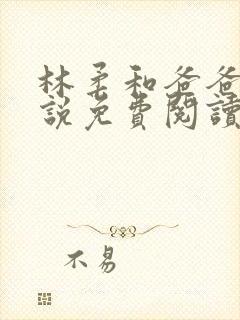 林柔和爸爸
說免費閱讀
不易